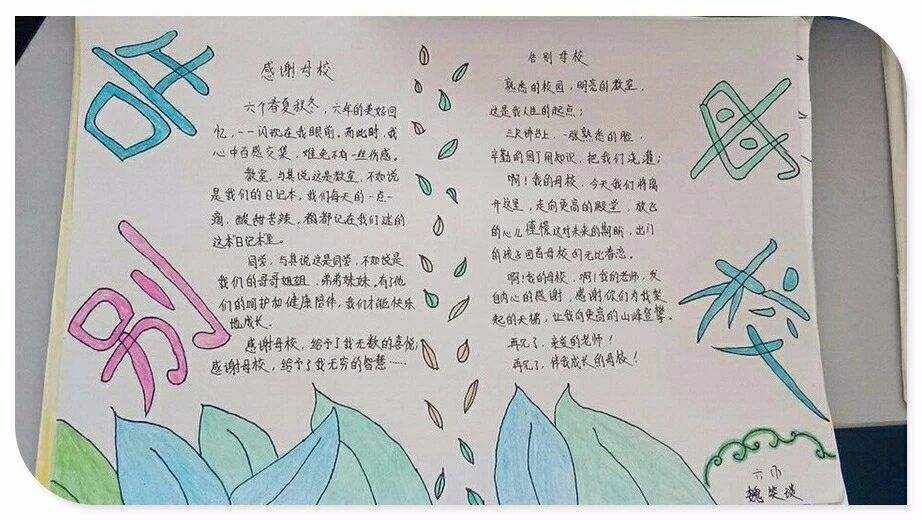 告
别
感谢母校
六个春夏秋冬，六年的美好回
忆，一一闪现在我眼前。而此时，我
心中百感交集，难免不有一丝伤感。
教室，与其说这是教室，不如说
是我们的日记本。我们每天的一点一
滴，酸甜苦辣，都记在我们这的
这本日记本里。
同学，与其说这是同学，不如说是
我们的哥哥姐姐、弟弟妹妹。有了他
们的呵护和健康陪伴，我们才能快乐
地成长。
感谢母校，给予了我无数的喜悦；
感谢母校，给予了我无穷的智慧……
告别母校
熟悉的校园，明亮的教室，
这是我人生的起点；
三尺讲台上，一张熟悉的脸，
辛勤的园丁用知识，把我们浇灌；
啊！我的母校，今天我们将离
开这里，走向更高的殿堂，放飞
的心儿憧憬这对未来的期盼，出门
的孩子回首母校的无比眷恋。
啊！我的母校，啊！我的老师，发
自内心的感谢，感谢你们为我架
起的天梯，让我向更高的山峰登攀。
再见了，亲爱的老师！
再见了，伴我成长的母校！
母
校
六
魏笑谈